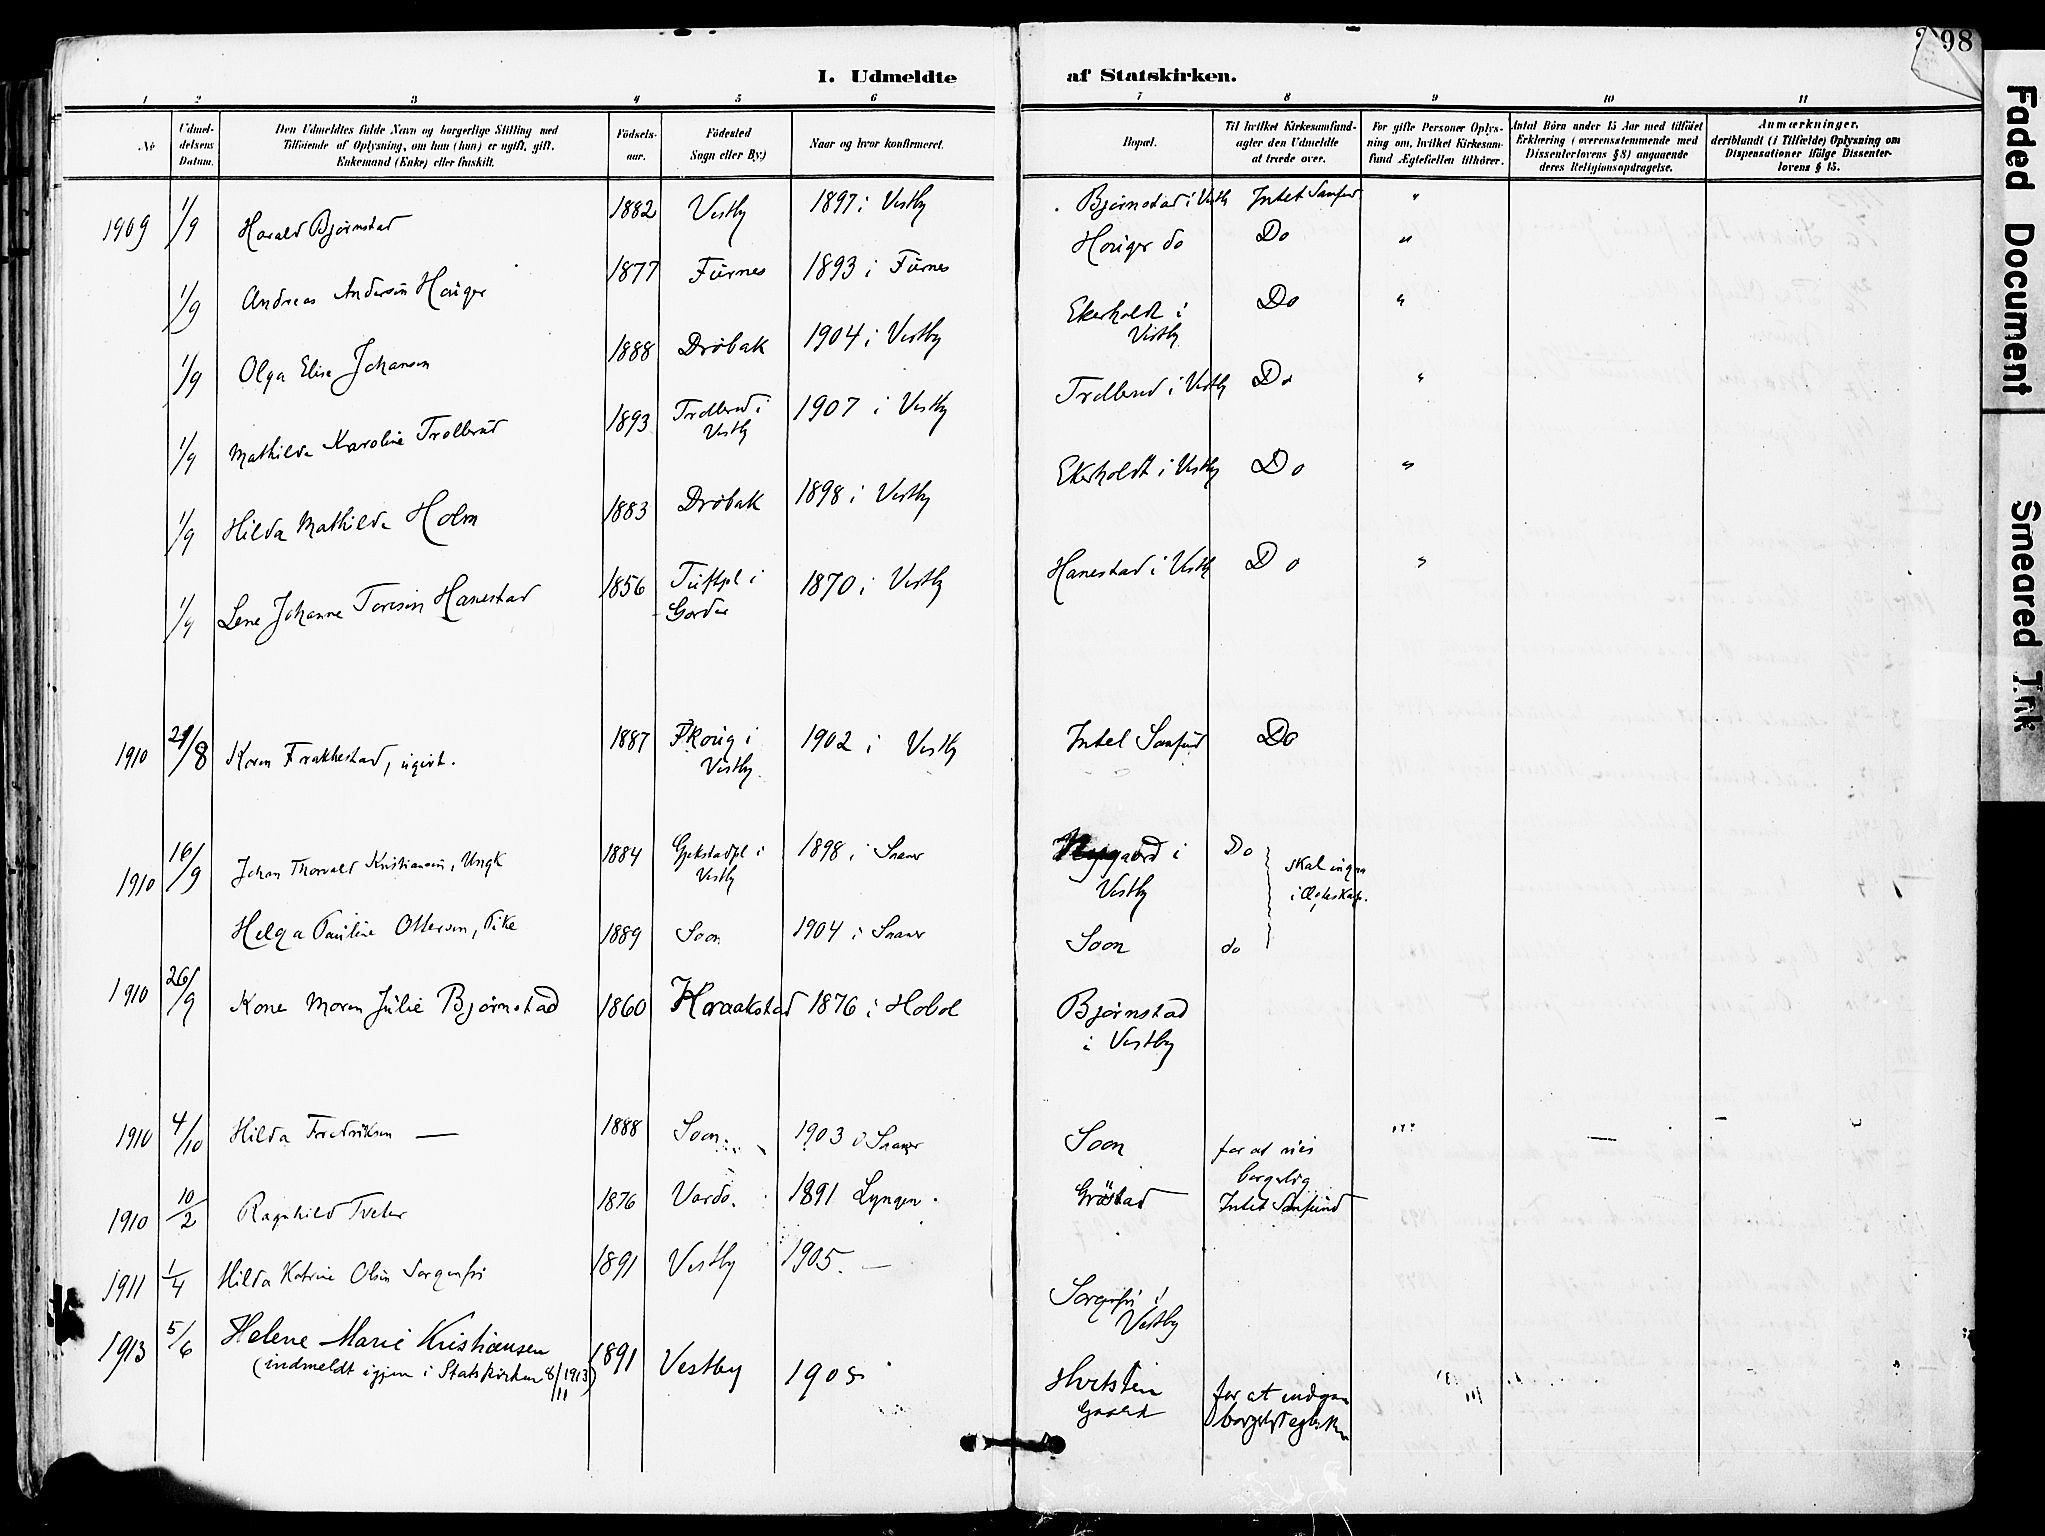 98
Faded Document
Smeared Ink
I. Udmeldte af Statskirken.
1 2 3 4 5 6 7 8 9 10 11
No
Udmel-
delsens
Datum.
Den Udmeldtes fulde Navn og borgerlige Stilling med
Tilføiende af Oplysning, om han (hun) er ugift, gift,
Enkemand (Enke) eller fraskilt.
Fødsels-
aar.
Fødested
Sogn eller By.)
Naar og hvor konfirmeret.
Bopæl.
Til hvilket Kirkesamfund-
agter den Udmeldte
at træde over.
For gifte Personer Oplys-
ning om, hvilket Kirkesam-
fund Ægtefællen tilhører.
Antal Børn under 15 Aar med tilføiet
Erklæring (overensstemmende med
Dissenterlovens § 8) angaaende
deres Religionsopdragelse.
Anmærkninger,
deriblandt (i Tilfælde) Oplysning om
Dispensationer ifølge Dissenter-
lovens § 15.
1909 1/9 Harald Bjørnstad 1882 Vestby 1897 i Vestby Bjørnstad i Vestby Intet Samfund "
1/9 Andreas Andersen Hauger 1877 Furnes 1893 i Furnes Hauger do Do "
1/9 Olga Elise Johansen 1888 Drøbak 1904 i Vestby Ekerholdt i Vestby Do "
1/9 Mathilde Karoline Trollerud 1893 Trollerud i Vestby 1907 i Vestby Trollerud i Vestby Do "
1/9 Hilda Mathilde Holm 1883 Drøbak 1898 i Vestby Ekerholdt i Vestby Do "
1/9 Lene Johanne Toresen Hanestad 1856 1870 i Vestby Hanestad i Vestby Do "
1910 /8 Karen Frakkestad, ugivt. 1887 Vestby 1902 i Vestby Intet Samfund Do
1910 16/9 Johan Thorvald Kristiansen, Ungk 1884 Gjekstadpl i Vestby 1898 i Saaner i Vestby Do
skal indgaa
i Ægteskab.
Helga Pauline Ottersen, Pike 1889 Soon 1904 i Saaner Soon do
1910 26/9 Kone Maren Julie Bjørnstad 1860 Kraakstad 1876 i Hobøl Bjørnstad
i Vestby
1910 4/10 Hilda Fredriksen — 1888 Soon. 1903 Saaner Soon for at vies
borgerlig
1910 10/2 Ragnhild Tveter 1876 Vardø. 1891 Lyngen. Gröstad Intet Samfund
1911 1/4 Hilda Katrine Olsen Sorgenfri 1891 Vestby 1905. — Sorgenfri i
Vestby
1913 5/6 Helene Marie Kristiansen 1891 Vestby 1905 Hvitsten
(indmeldt igjen i Statskirken 8/11 1913)
for at indgaa